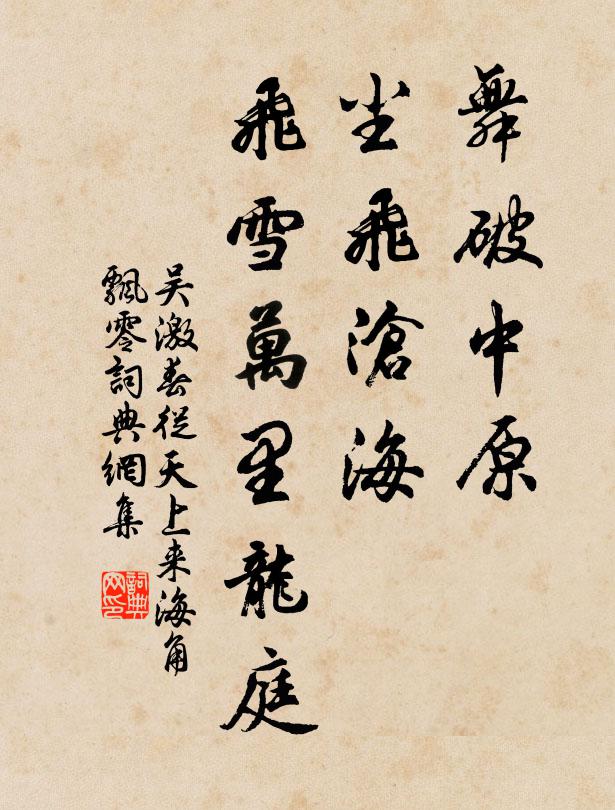 舞破中原
尘飛滄海
飛雪萬里龍庭
吴激春從天上来海角
飄零詞典網集
詞典
网印